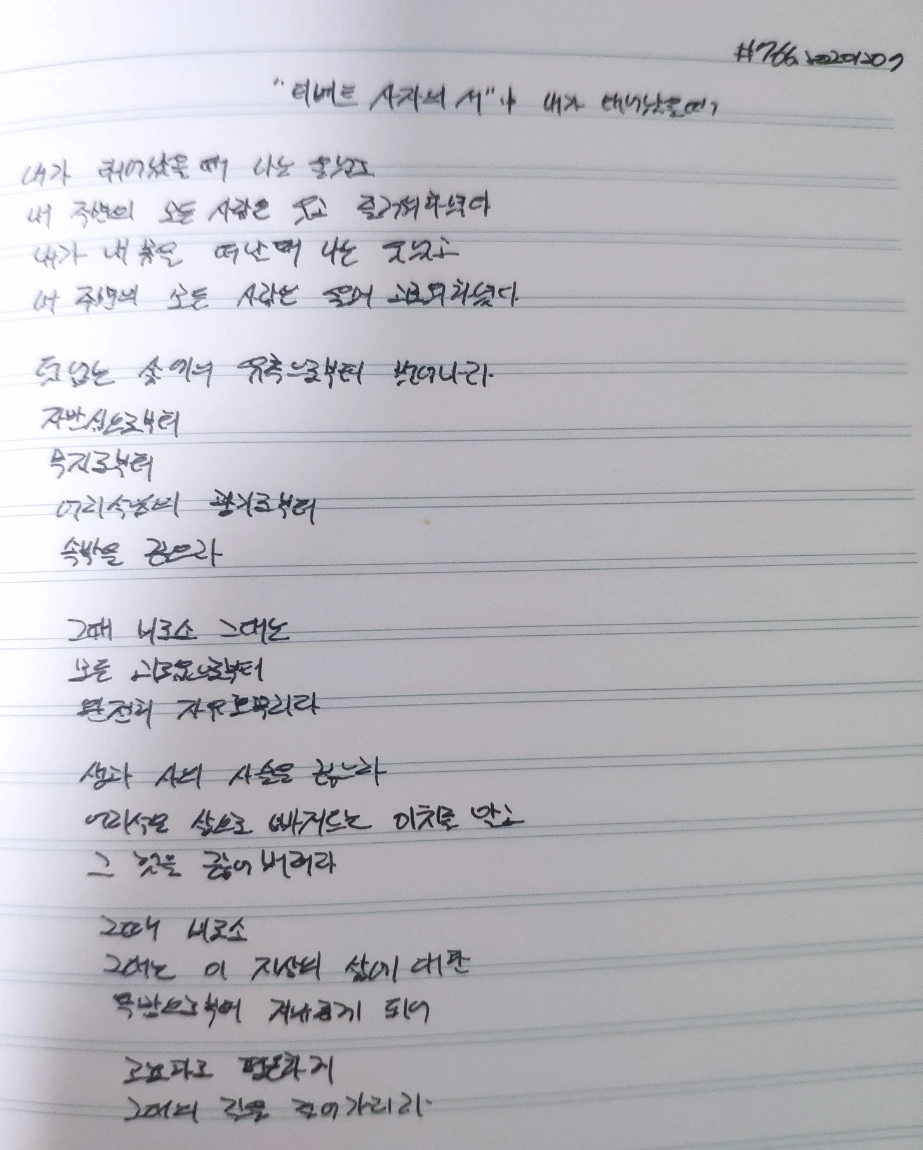 #766. 20201207
"티베트 사자의 서"中 내가 태어났을 때
내가 태어났을 때 나는 울었고
내 주변의 모든 사람은 웃고 즐거워하였다
내가 내 몸을 떠날 때 나는 웃었고
내 주변의 모든 사람은 울며 괴로워하였다
덧없는 삶에의 유혹으로부터 벗어나라.
자만심으로부터
무지로부터
어리석음의 광기로부터
속박을 끊으라
그때 비로소 그대는
모든 괴로움으로부터
완전히 자유로우리라
생과 사의 사슬을 끊으라
어리석은 삶으로 빠져드는 이치를 알고
그 것을 끊어 버려라
그때 비로소
그대는 이 지상의 삶에 대한
욕망으로부터 자유롭게 되어
고요하고 평온하게
그대의 길을 걸어가리라.